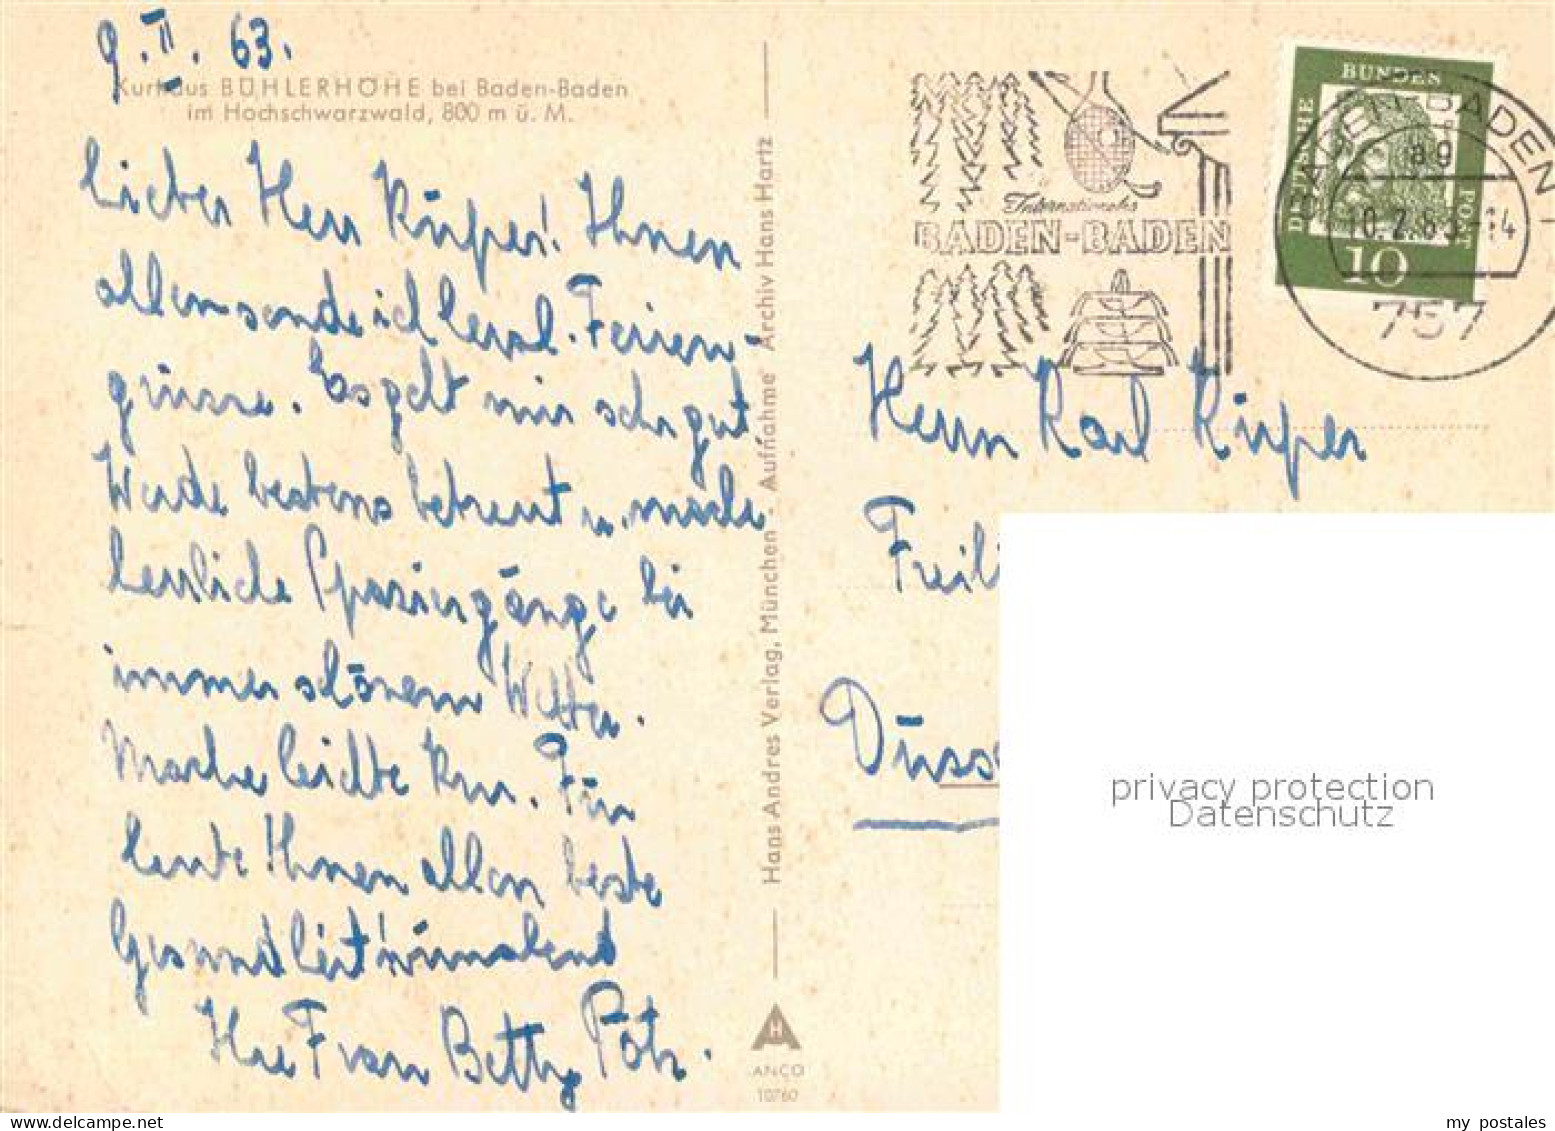 9. II. 63.
Kurhaus BÜHLERHÖHE bei Baden-Baden
im Hochschwarzwald, 800 m ü. M.
Lieber Herr Küper! Ihnen
allen sende ich herzl. Ferien-
grüsse. Es geht mir sehr gut.
Werde bestens betreut u. mache
herrliche Spaziergänge bei
immer schönem Wetter.
Mache leichte Kur. Für
heute Ihnen allen beste
Gesundheit wünschend
Ihre Frau Betty
Hans Andres Verlag, München - Aufnahme Archiv Hans Hartz
ANCO
10760
Internationales
BADEN-BADEN
DEUTSCHE
BUNDES
POST
10
BADEN-BADEN 1
ag
10.2.63-14
757
Herrn Karl Küper
Freili
Düsse
privacy protection
Datenschutz
my postales